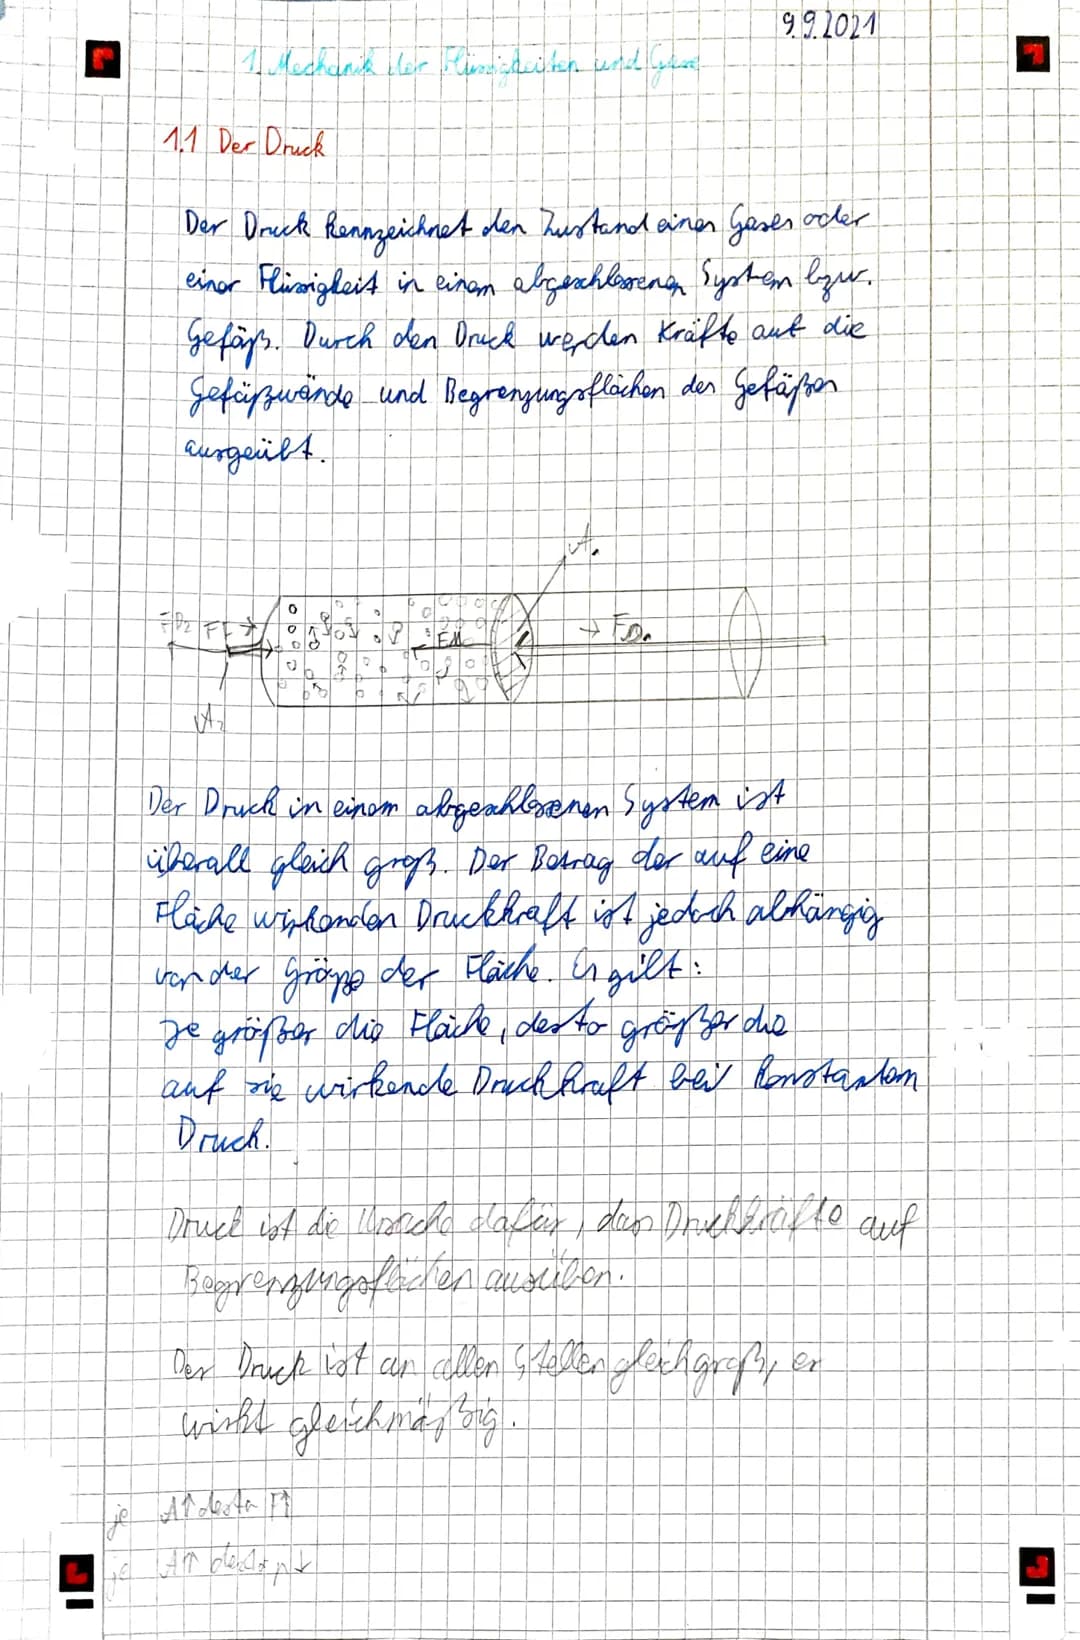 9.9.2021
1. Mechanik der Flüssigkeiten und Gase
1.1 Der Druck
Der Druck kennzeichnet den Zustand eines Gases oder
einer Flüssigkeit in einem abgeschlossenen System bzw.
Gefäß. Durch den Druck werden Kräfte auf die
Gefäßwände und Begrenzungsflächen des Gefäßes
ausgeübt.
A1
FD2 FE FM → FD1
A2
Der Druck in einem abgeschlossenen System ist
überall gleich groß. Der Betrag der auf eine
Fläche wirkenden Druckkraft ist jedoch abhängig
von der Größe der Fläche. Es gilt:
Je größer die Fläche, desto größer die
auf sie wirkende Druckkraft bei konstantem
Druck.
Druck ist die Ursache dafür, das Druckkräfte auf
Begrenzungsflächen ausüben.
Der Druck ist an allen Stellen gleichgroß, er
wirkt gleichmäßig.
je A↑ desto F↑
je A↑ desto p↓